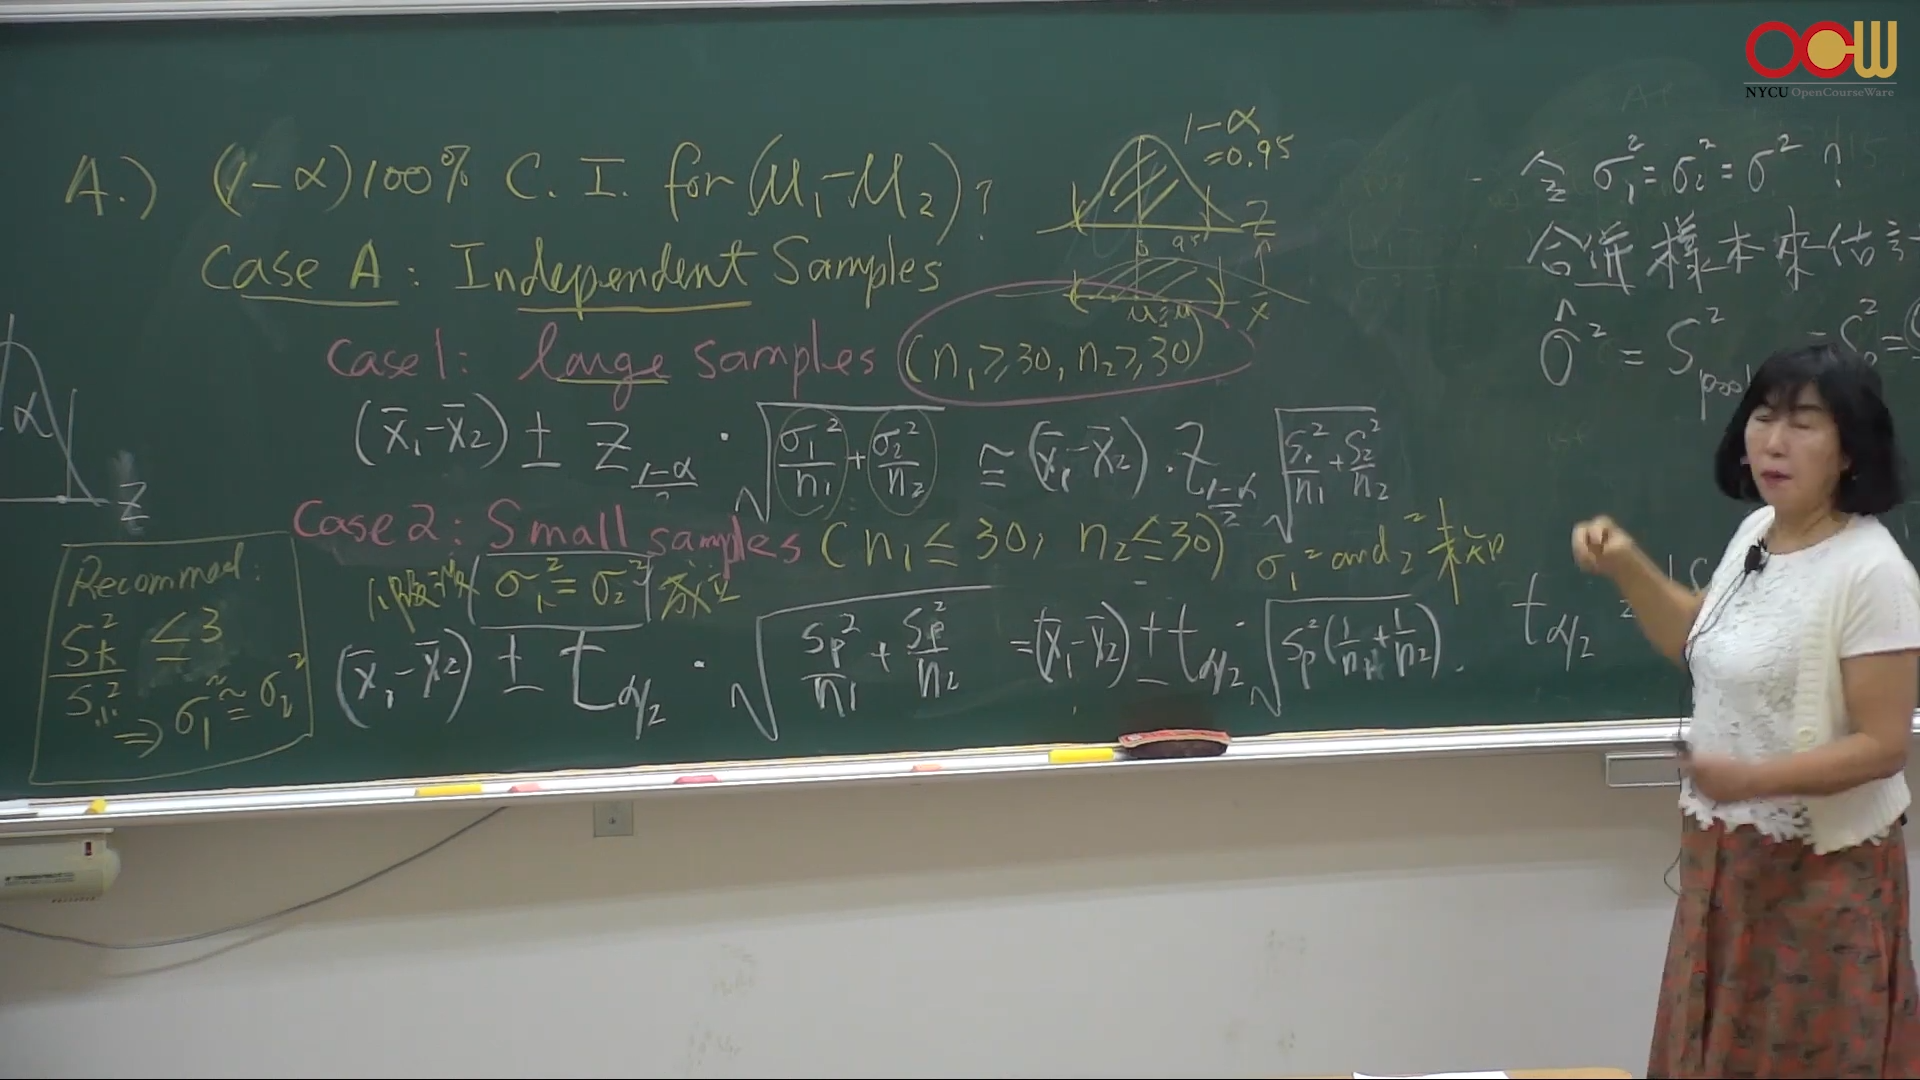 OCW
NYCU OpenCourseWare
A.) (1-α)100% C. I. for (μ₁-μ₂)?
Case A: Independent Samples
1-α
=0.95
Z
0
.95
x̄
α
Z
Case1: large samples (n₁≥30, n₂≥30)
(x̄₁-x̄₂) ± Z_{(1-α)/2} · √(σ₁²/n₁ + σ₂²/n₂) ≅ (x̄₁-x̄₂) · Z_{(1-α)/2} √(S₁²/n₁ + S₂²/n₂)
Case2: Small samples (n₁≤30, n₂≤30) σ₁² and ₂² 未知
假設 (σ₁²=σ₂²) 成立
(x̄₁-x̄₂) ± t_{α/2} · √(Sp²/n₁ + Sp²/n₂) = (x̄₁-x̄₂) ± t_{α/2} · √(Sp²(1/n₁+1/n₂)).
Recommed:
≤3
⇒ σ₁² ≅ σ₂²
令 σ₁²=σ₂²=σ²?
合併樣本來估計
σ̂² = S²
t_{α/2}